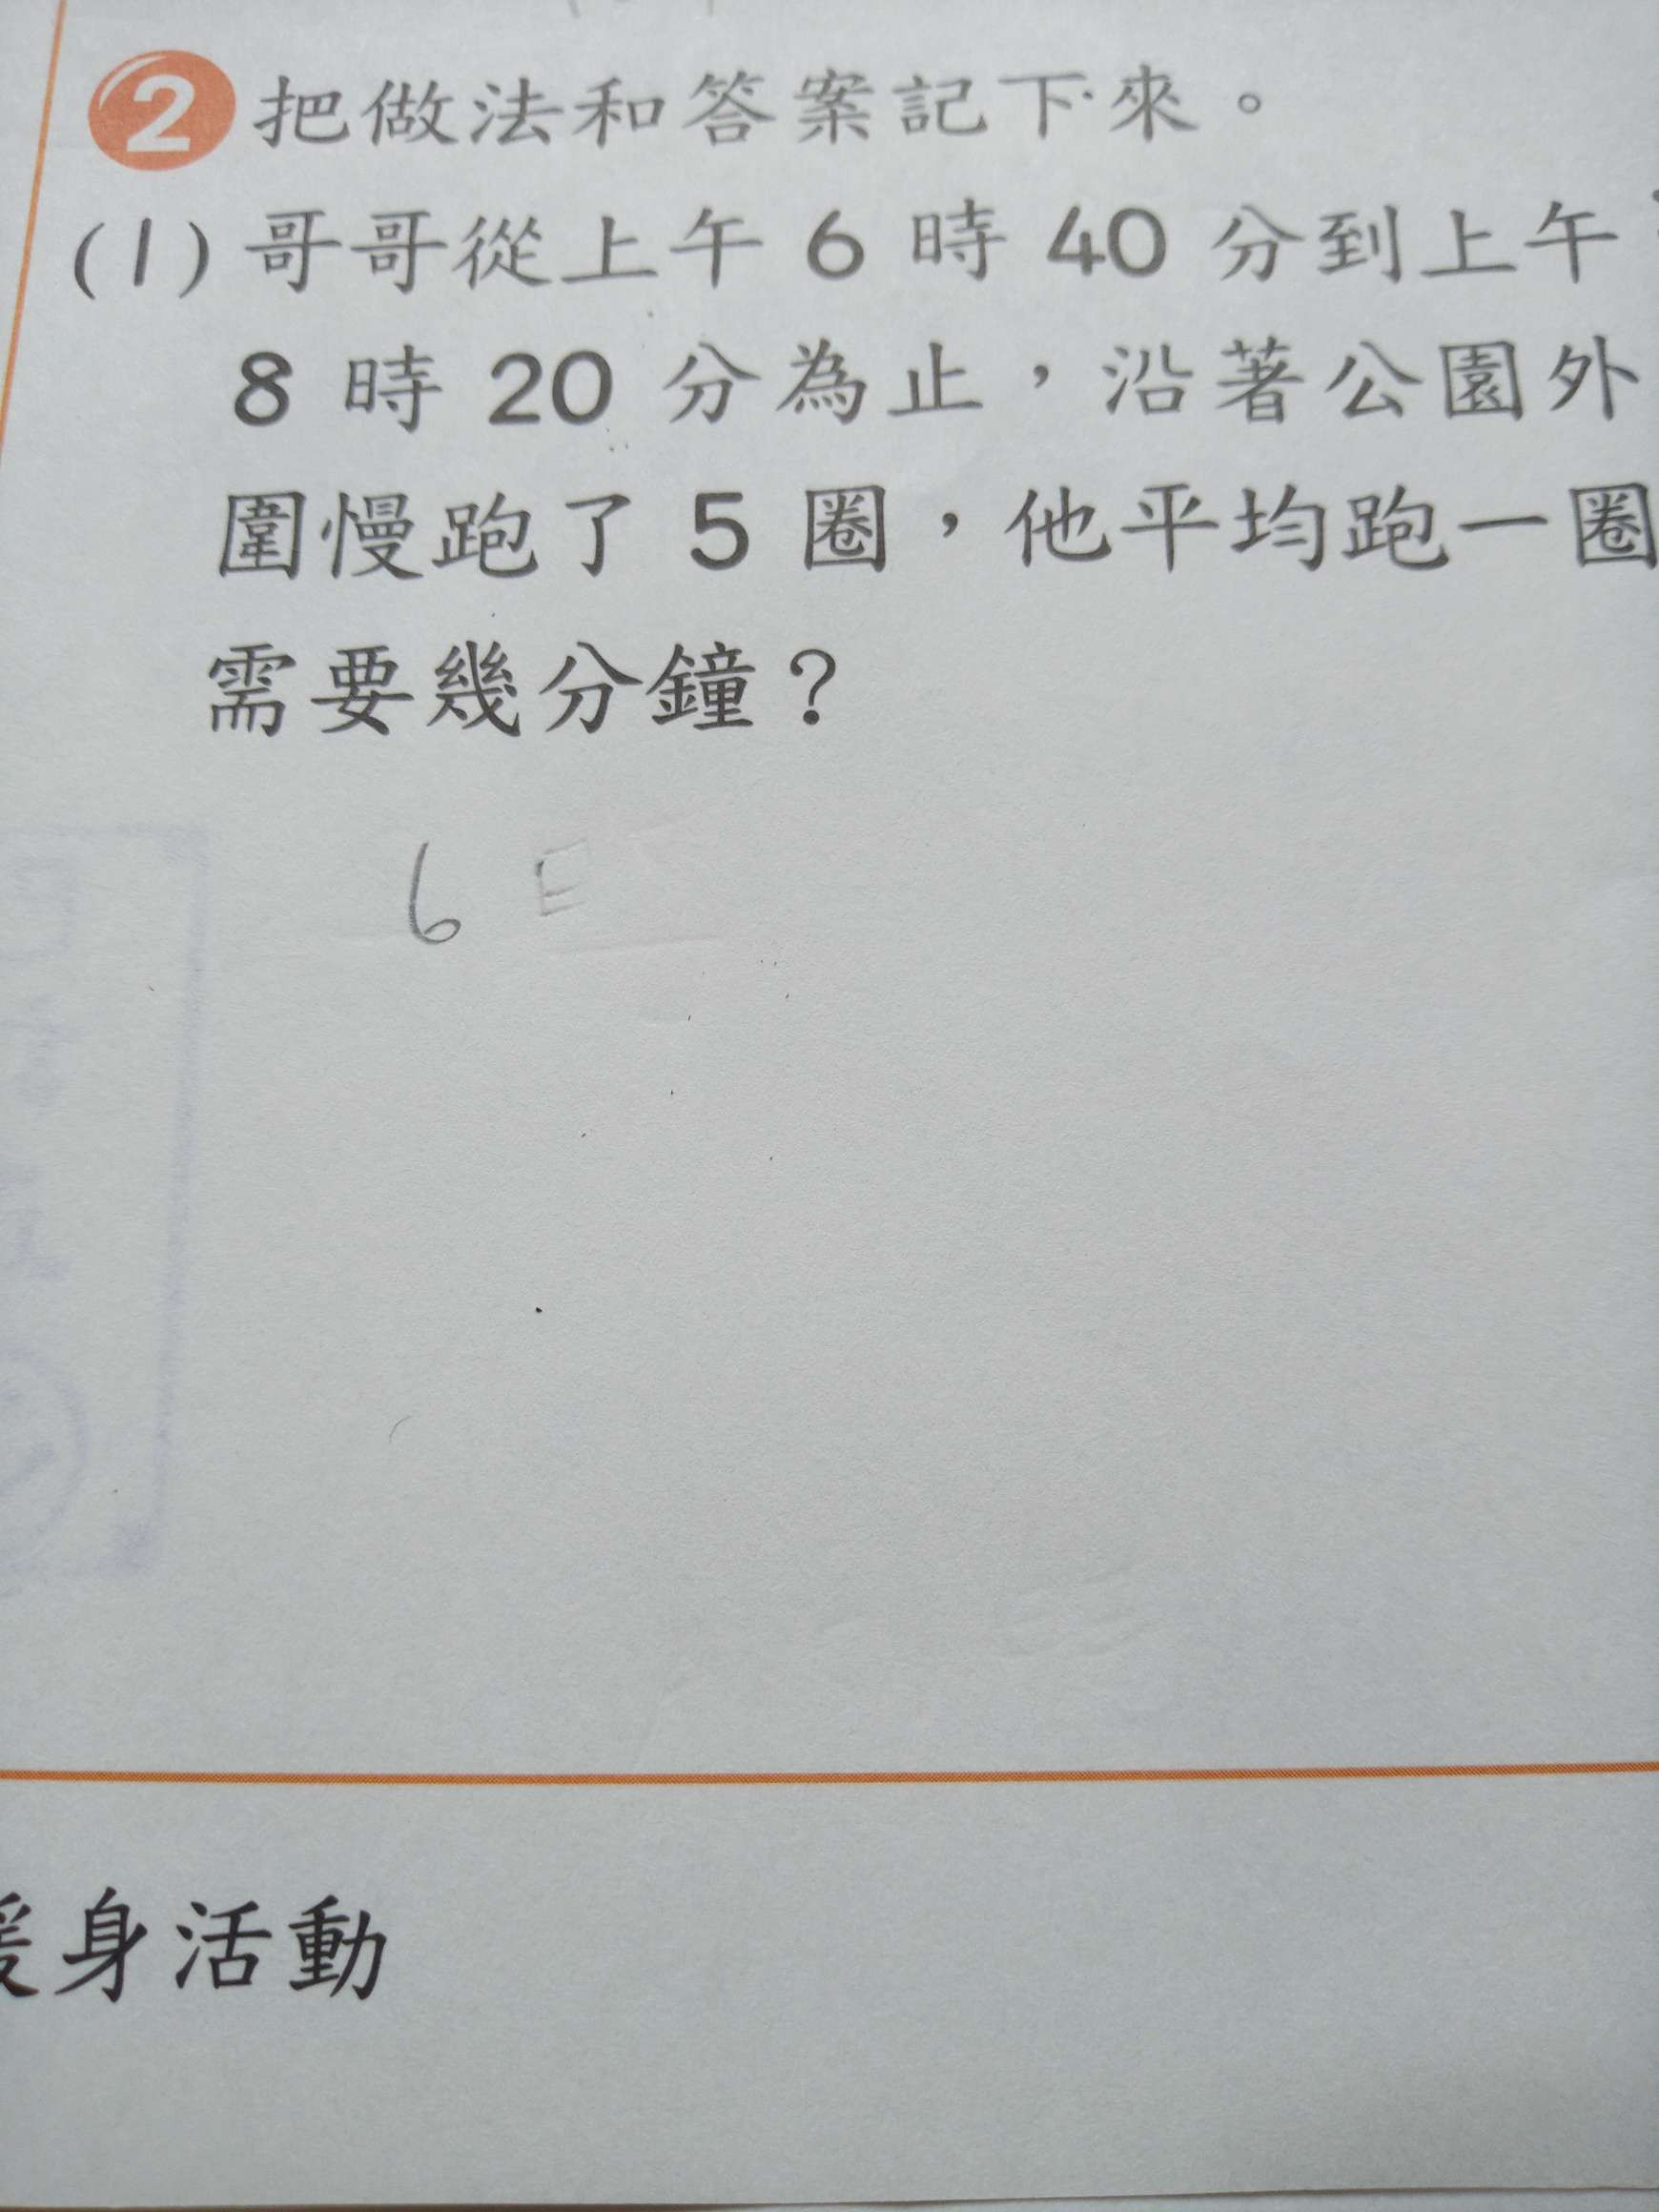 2 把做法和答案記下來。
(1)哥哥從上午 6 時 40 分到上午
8 時 20 分為止，沿著公園外
圍慢跑了 5 圈，他平均跑一圈
需要幾分鐘？
6
身活動